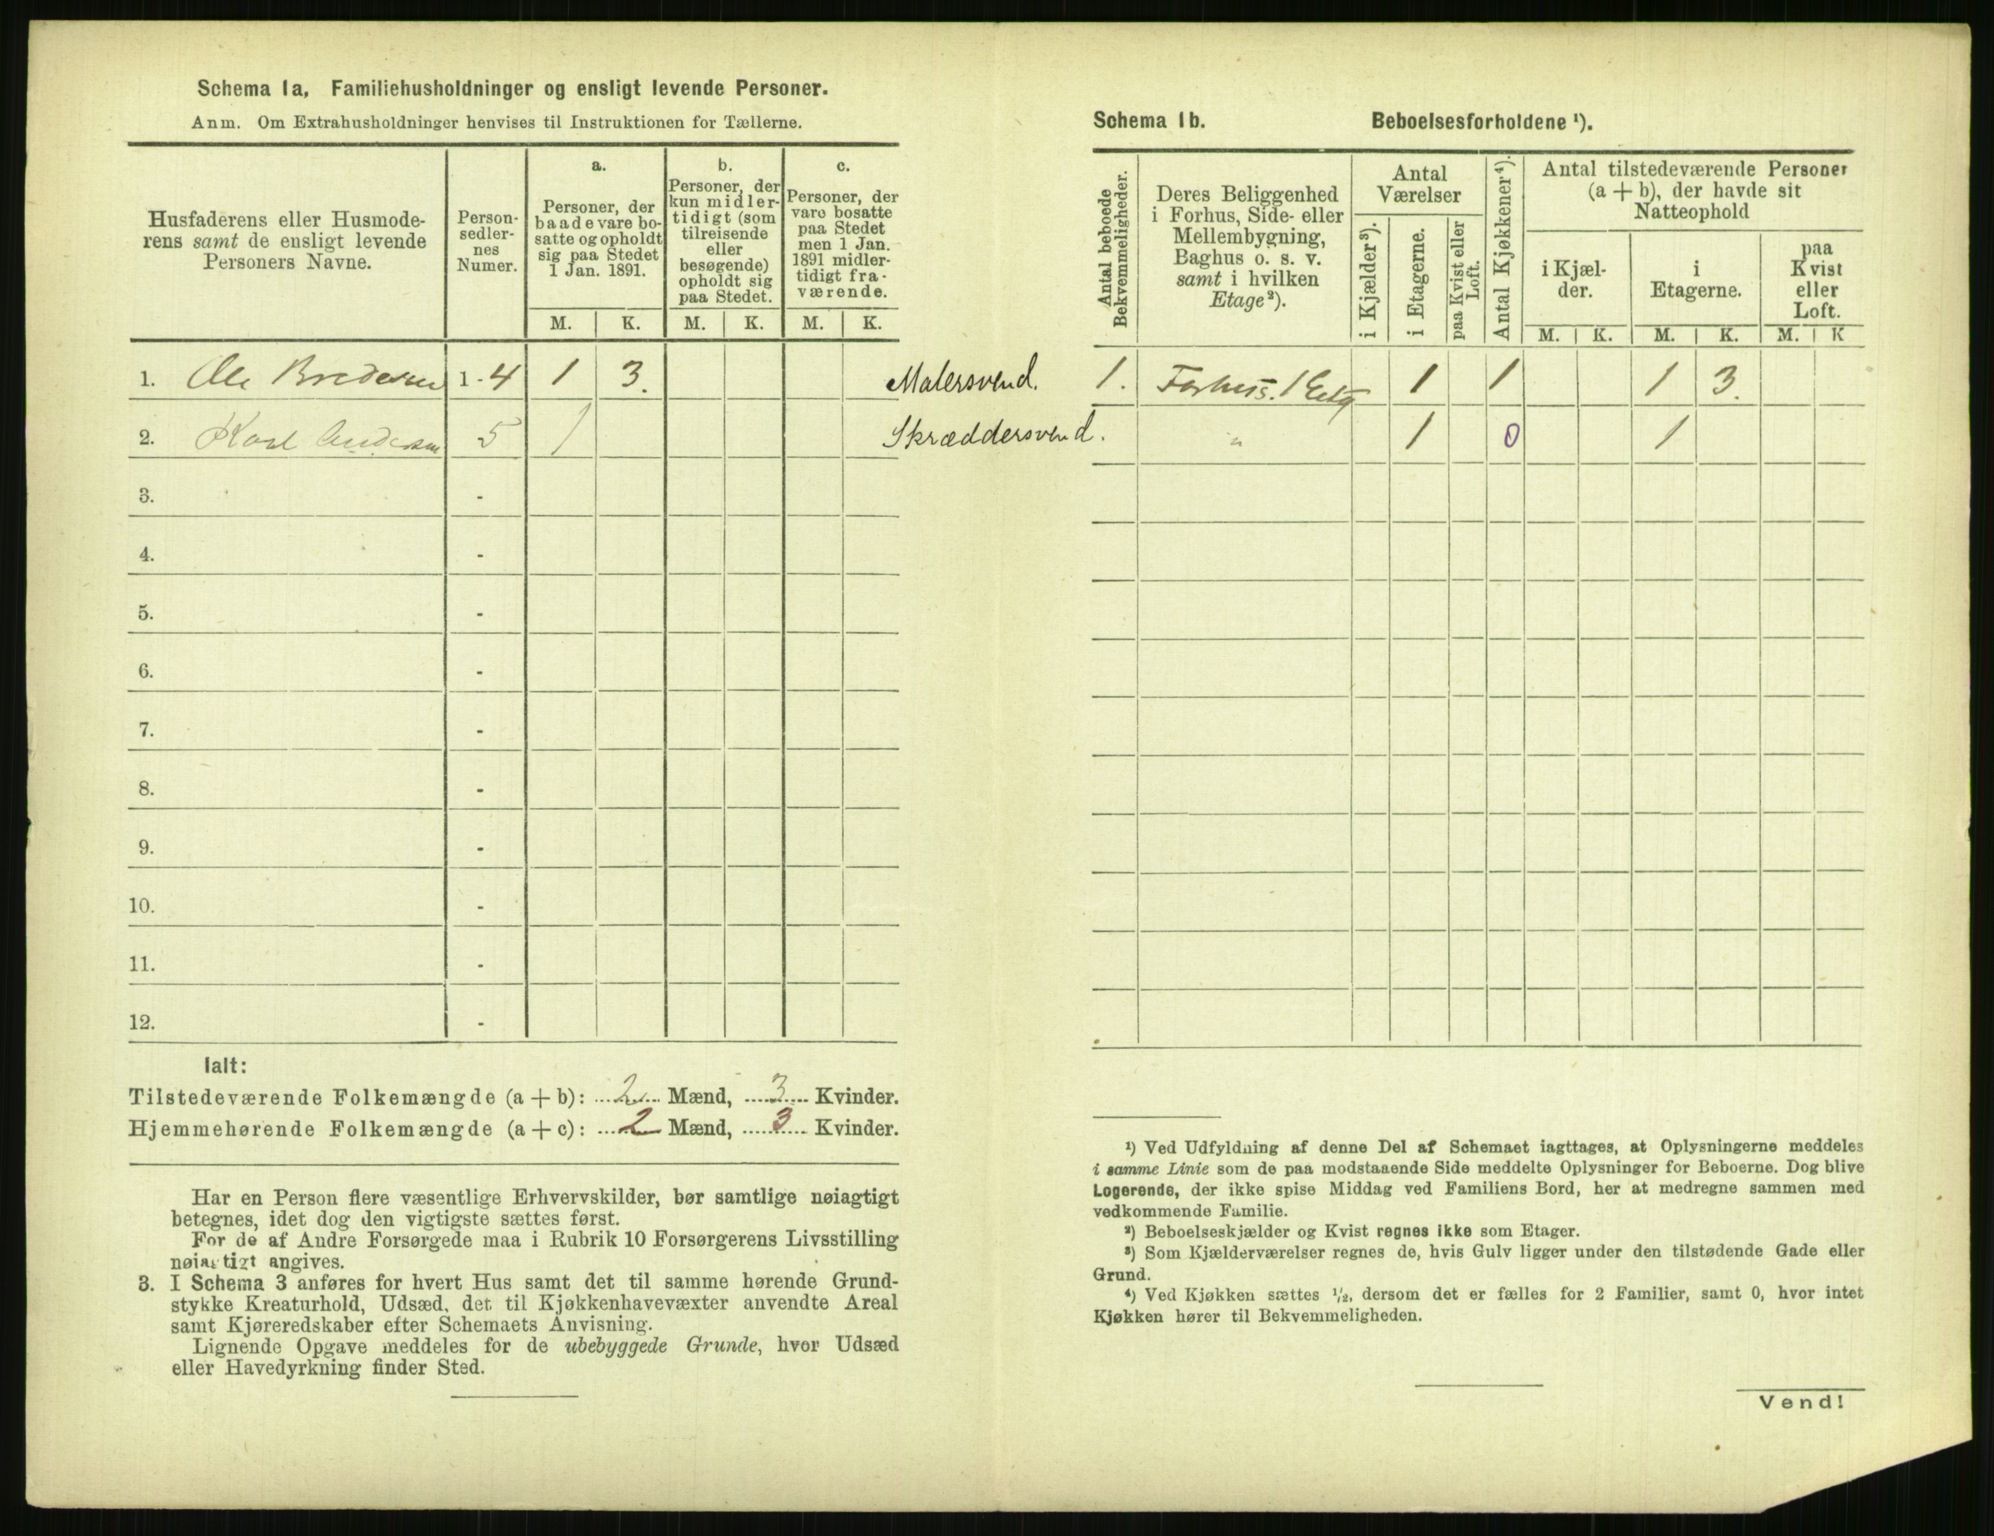 Schema 1a, Familiehusholdninger og ensligt levende Personer.
Anm. Om Extrahusholdninger henvises til Instruktionen for Tællerne.
Husfaderens eller Husmode-
rens samt de ensligt levende
Personers Navne.
Person-
sedler-
nes
Numer.
a.
Personer, der
baade vare bo-
satte og opholdt
sig paa Stedet
1 Jan. 1891.
b.
Personer, der
kun midler-
tidigt (som
tilreisende
eller
besøgende)
opholdt sig
paa Stedet.
c.
Personer, der
vare bosatte
paa Stedet
men 1 Jan.
1891 midler-
tidigt fra-
værende.
M. K. M. K. M. K.
1. Ole 1-4 1 3. Malersvend.
2. Karl Andersen 5 1 Skræddersvend.
3. -
4. -
5. -
6. -
7. -
8. -
9. -
10. -
11. -
12. -
Ialt:
Tilstedeværende Folkemængde (a + b): 2 Mænd, 3 Kvinder.
Hjemmehørende Folkemængde (a + c): 2 Mænd, 3 Kvinder.
Har en Person flere væsentlige Erhvervskilder, bør samtlige nøiagtigt
betegnes, idet dog den vigtigste sættes først.
For de af Andre Forsørgede maa i Rubrik 10 Forsørgerens Livsstilling
nøiagtigt angives.
3. I Schema 3 anføres for hvert Hus samt det til samme hørende Grund-
stykke Kreaturhold, Udsæd, det til Kjøkkenhavevæxter anvendte Areal
samt Kjøreredskaber efter Schemaets Anvisning.
Lignende Opgave meddeles for de ubebyggede Grunde, hvor Udsæd
eller Havedyrkning finder Sted.
Schema 1b. Beboelsesforholdene ¹).
Antal beboede
Bekvemmeligheder.
Deres Beliggenhed
i Forhus, Side- eller
Mellembygning,
Baghus o. s. v.
samt i hvilken
Etage ²).
Antal
Værelser
i Kjælder ³).
i Etagerne.
paa Kvist eller
Loft.
Antal Kjøkkener ⁴).
Antal tilstedeværende Personer
(a + b), der havde sit
Natteophold
i Kjæl-
der.
i
Etagerne.
paa
Kvist
eller
Loft.
M. K. M. K. M. K
1. Forhus. 1 Etg 1 1 1 3.
" 1 0 1
¹) Ved Udfyldning af denne Del af Schemaet iagttages, at Oplysningerne meddeles
i samme Linie som de paa modstaaende Side meddelte Oplysninger for Beboerne. Dog blive
Logerende, der ikke spise Middag ved Familiens Bord, her at medregne sammen med
vedkommende Familie.
²) Beboelseskjælder og Kvist regnes ikke som Etager.
³) Som Kjælderværelser regnes de, hvis Gulv ligger under den tilstødende Gade eller
Grund.
⁴) Ved Kjøkken sættes ½, dersom det er fælles for 2 Familier, samt 0, hvor intet
Kjøkken hører til Bekvemmeligheden.
Vend!